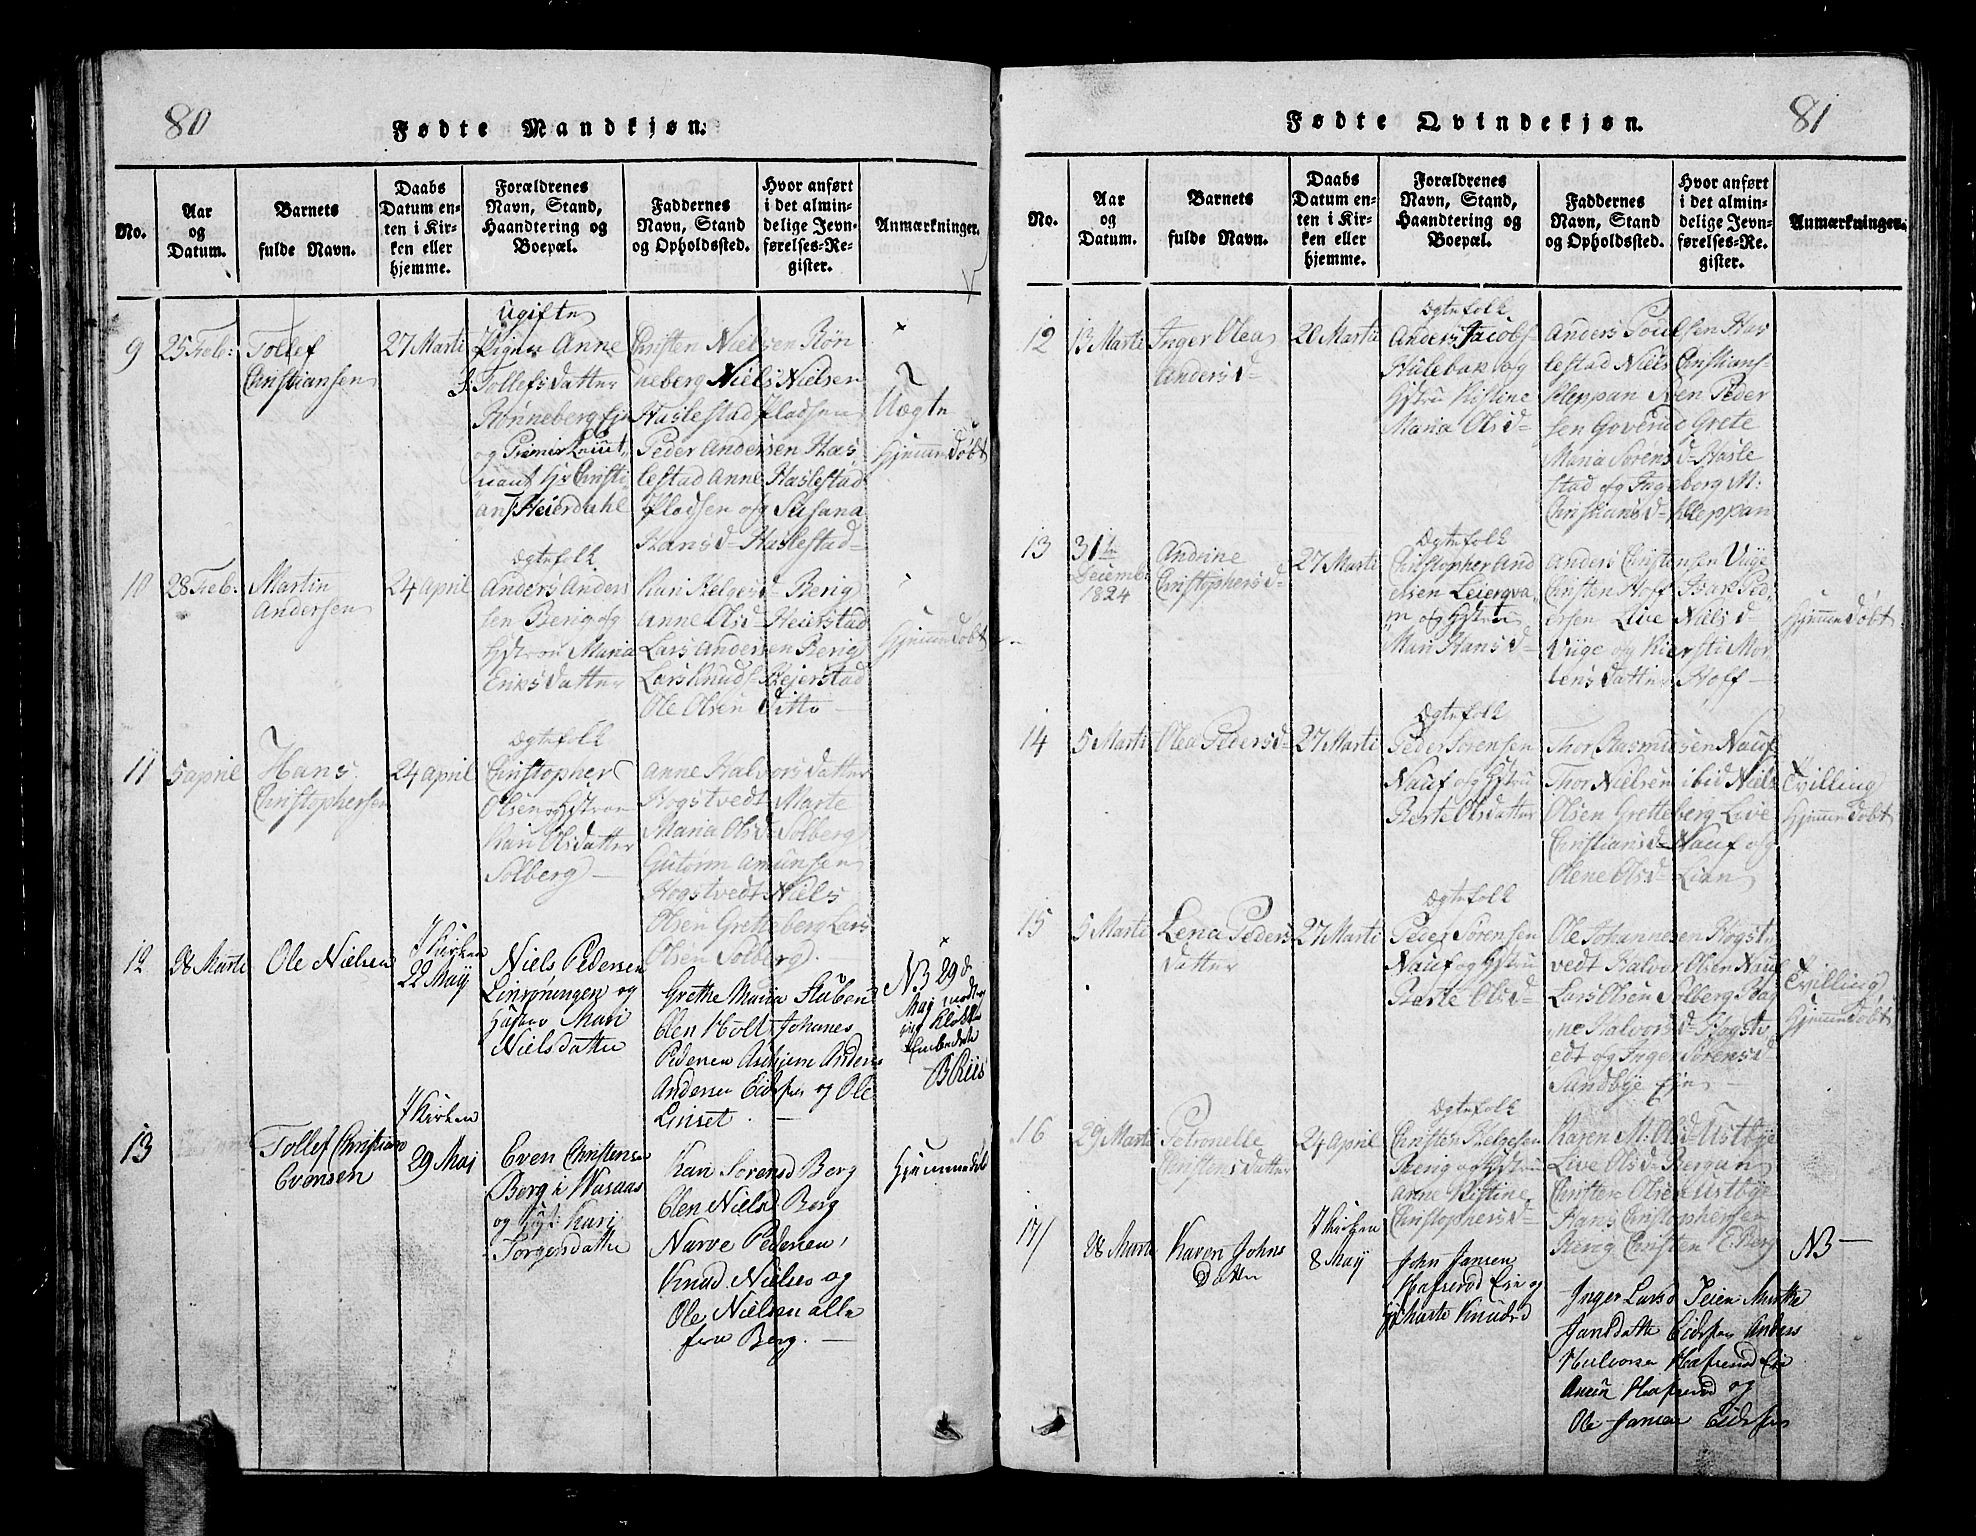 80
Fødte Mandkjøn.
No.
Aar
og
Datum.
Barnets
fulde Navn.
Daabs
Datum en-
ten i Kir-
ken eller
hjemme.
Forældrenes
Navn, Stand,
Haandtering og
Boepæl.
Faddernes
Navn, Stand
og Opholdssted.
Hvor anført
i det almin-
delige Jevn-
førelses-Re-
gister.
Anmærkninger.
9
25 Feb:
Tollef
Christiansen
27 Marti
Ugifte
Pigen Anne
Tollefsdatter
Rønneberg Eje
og Premier Lieut
nant Hr Christi
ans Heierdahl
Christen Nielsen Røn
neberg Niels Nielsen
Haslestad Pladsen
Peder Andersen Has
lestad Anne Haslestad
Pladsen og Susana
Hansd- Haslestad-
Uægte
Hjemmedøbt
10
28 Feb:
Martin
Andersen
24 April
Ægtefolk
Anders Anders
sen Berig og
Hustru Maria
Eriksdatter
Kari Helgesd- Berig
Anne Olsd- Heierstad
Lars Andersen Berig
Lars Knuds- Hejerstad
Ole Olsen Ditto -
Hjemmedøbt
11
5 april
Hans
Christophersen
24 April
Ægtefolk
Christopher
Olsen og Hustrue
Kari Olsdatter
Solberg -
Anne Halvorsdatter
Hogstvedt Marte
Maria Olsd- Solberg
Gutorm Amunsen
Hogstvedt Niels
Olsen Gretteberg Lars
Olsen Solberg. -
12
28 Marti
Ole Nielsen
I Kirken
22 Maij
Niels Pedersen
og
Hustru Mari
Nielsdatter
Grethe Maria
Holt Johanes
Pedersen Anders
Andersen og Ole
Linset. -
NB 29 d
Maj modt-
Klokker
Embedete
B Riis
13
Tollef Christian
Evensen
I Kirken
29 Maj
Even Christensen
Berg i
og Hust: Kari
Torgersdatter
Kari Sørensd Berg
Nielsd Berg
Narve Pedersen,
Knud Nielsen og
Ole Nielsen alle
fra Berg. -
Hjemmedøb
81
Fødte Qvindekjøn.
No.
Aar
og
Datum.
Barnets
fulde Navn.
Daabs
Datum en-
ten i Kir-
ken eller
hjemme.
Forældrenes
Navn, Stand,
Haandtering og
Boepæl.
Faddernes
Navn, Stand
og Opholdssted.
Hvor anført
i det almin-
delige Jevn-
førelses-Re-
gister.
Anmærkninger.
12
13 Marti
Inger Olea
Andersd-
20 Marti
Ægtefolk
Anders Jacobs-
Hulebak og
Hstru Kistine
Maria Olsd-
Anders Poulsen Has
lestad Niels Christians-
Kleppan Peder
sen Grete
Maria Sørensd- Hasle
stad og Ingeberg M:
Christiansd- Kleppan
13
31te
Decemb:
1824
Andrine
Christophersd-
27 Marti
Ægtefolk
Christopher And
ersen Leiergva
m og Hstrue
Mari Hansd-
Anders Christensen Viige
Christen Hoff Isak Ped
ersen Live Nielsd-
Viige og Kiersti Mor
tensdatter Hoff -
Hjemmedøbt
14
5 Marti
Olea Pedersd-
27 Marti
Ægtefolk
Peder Sørensen
Nauf og Hstru
Berte Olsdatter
Thor Rasmusen Nauf
Thor Nielsen ibid Niels
Olsen Gretteberg Live
Christiansd- Nauf og
Olene Olsd- Lien
Tvilling
Hjemmedøbt
15
5 Marti
Lena Peders
datter
27 Marti
Ægtefolk
Peder Sørensen
Nauf og Hstru
Berte Olsd-
Ole Johannesen Hogst
vedt Halvor Olsen Nauf
Lars Olsen Solberg
ne Halvorsd- Hogstv
edt og Inger Sørensd
Sandbye Eje -
Tvilling
Hjemmedøbt
16
29 Marti
Petronelle
Christensdatter
24 April
Ægtefolk
Christen Helgesen
Berig og Hstru
Anne Kistine
Christophersd-
Karen M: Olsd Ustbye
Live Olsd- Bergan
Christen Olsen Ustbye
Hans Christophersen
Berig Christen E: Berg
17/
28 Marti
Karen Johns
datter
I Kirken
8 Maij
John Jansen
Hafserød Eie og
H: Marte Knudsd
Inger Larsd Teien Marthe
Jansdatter Anders
Halvorsen Hafserød Eie
Hafserød og
Ole Jansen
NB -